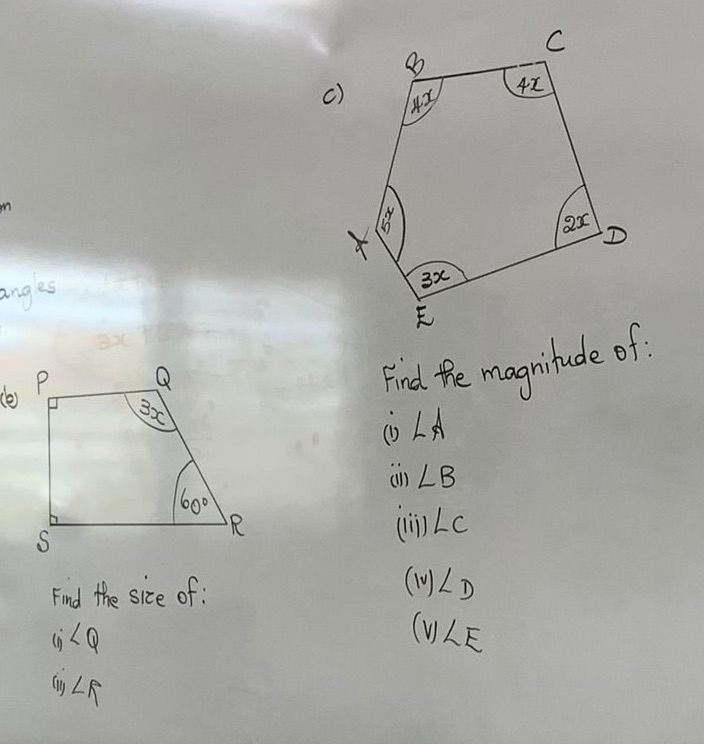 angles
(b)
P
Q
3x
60°
S
R
Find the size of:
(i) ∠Q
(ii) ∠R
c)
B
C
4x
4x
5x
2x
A
D
3x
E
Find the magnitude of:
(i) ∠A
(ii) ∠B
(iii) ∠C
(iv) ∠D
(v) ∠E